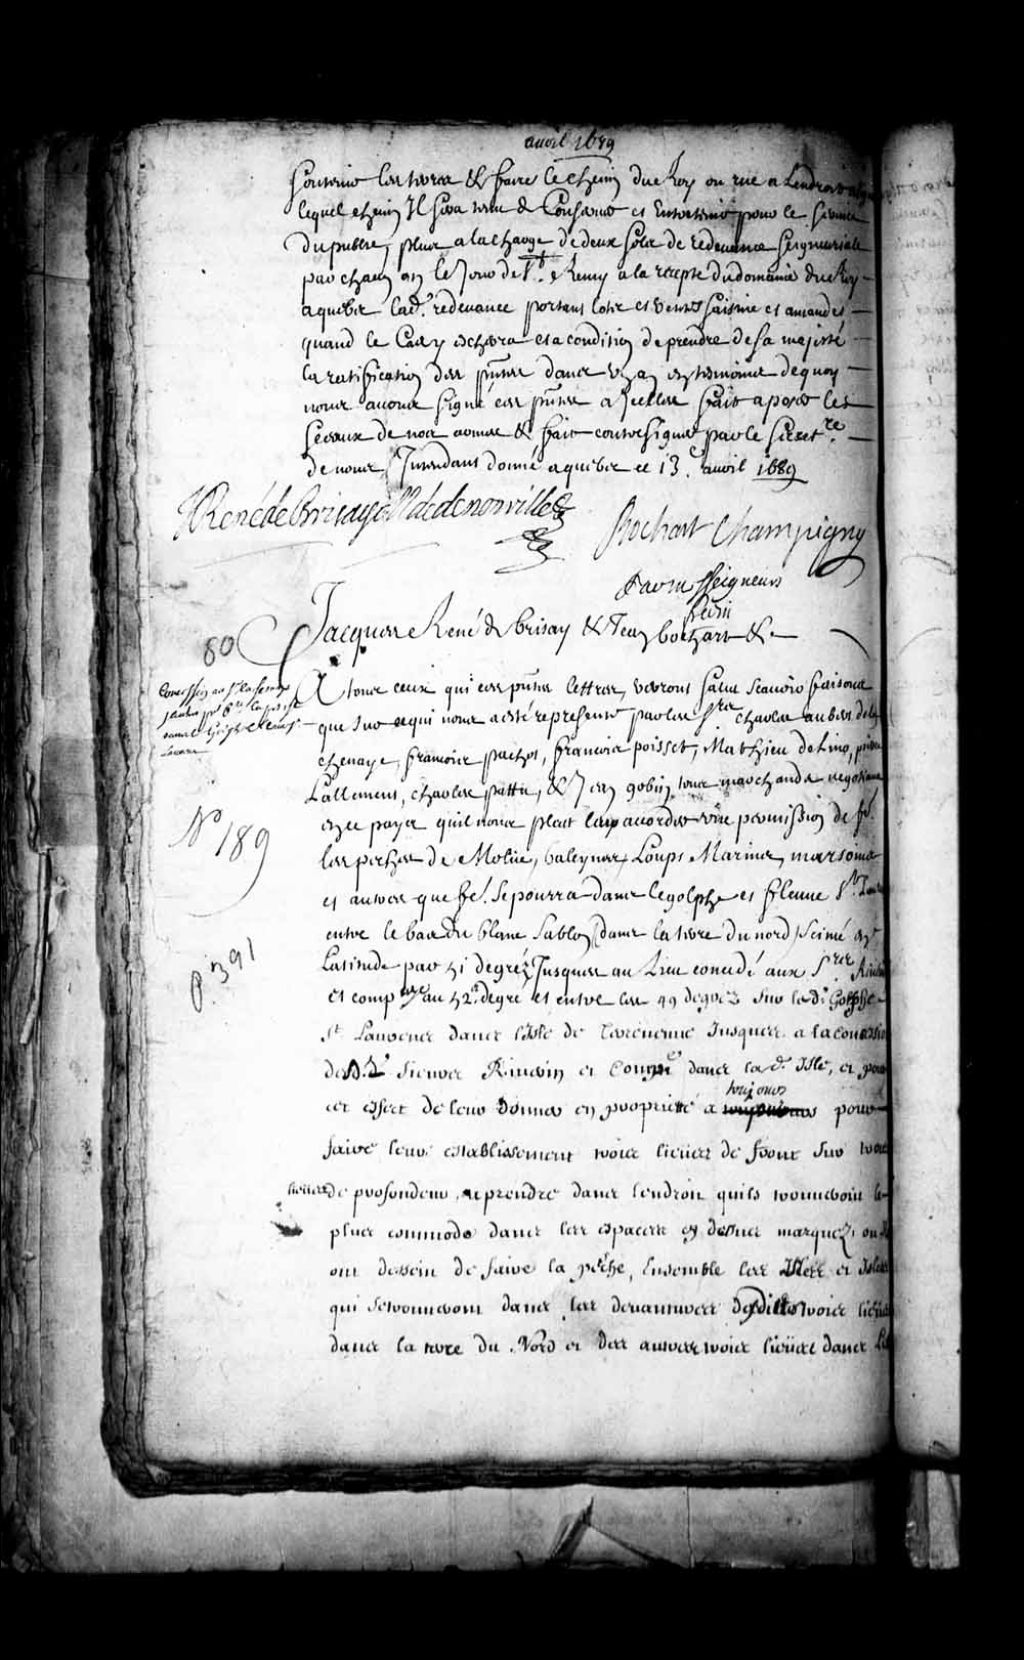 avril 1689
soutenir les terres & faire le chemin du Roy ou rue a Lendroit
lequel chemin Il sera tenu de Conserver et Entretenir pour le service
du public, plus a la charge de deux sols de redevance seigneuriale
par chacun an le Jour de St. Remy a la recepte du domaine du Roy
a quebec lad. redevance portant lots et ventes saisine et amandes
quand le Cas y eschera et a condition de prendre de sa majesté
la ratification des pntes dans un an en tesmoins de quoy
nous avons signé ces pntes a Icelles fait aposer les
sceaux de nos armes & fait contresigner par le secret.re
de nous Intendant donné a quebec ce 13.e avril 1689
J René de Brisay M de denonville
Bochart Champigny
Par messeigneurs
80
Jacques René de brisay & Jean bochart &
A tous ceux qui ces pntes lettres verront salut scavoir faisons
que sur ce qui nous a esté representé par les Srs charles aubert de la
chenaye, francois pachot, francois poisset, Mathieu de Lino, pierre
Lallement, charles pattu, & Jean gobin tous marchands negotians
en ce payx quil nous pleut leur accorder permission de fe.
les peches de Molüe, baleynes, Loups Marins, marsoins
et autres que fe. se pourra dans le golphe et fleuve St. Lau
N° 189
entre le baye du blanc sablon (dans la terre du nord) scitué en
Latitude par 51 degrez Jusques au Lieu concedé aux Srs Riverin
P. 391
et comp au 52.e degré et entre les 49 degrez sur led. Golphe
St Laurence dans l'Isle de Terreneuve Jusques a la concession
desd. Sieurs Riverin et Comp dans lad. Isle, et pour
cet effect de leur donner en proprieté a toujours pour
faire leur establissement trois lieües de front sur trois
lieues de profondeur, a prendre dans lendroit quils trouveront le
plus commode dans les espaces cy dessus marquez, ou
ont dessein de faire la pesche, Ensemble les Isles et Islets
qui se trouveront dans les devantures desdittes trois lieües
dans la terre du Nord et des autres trois lieües dans